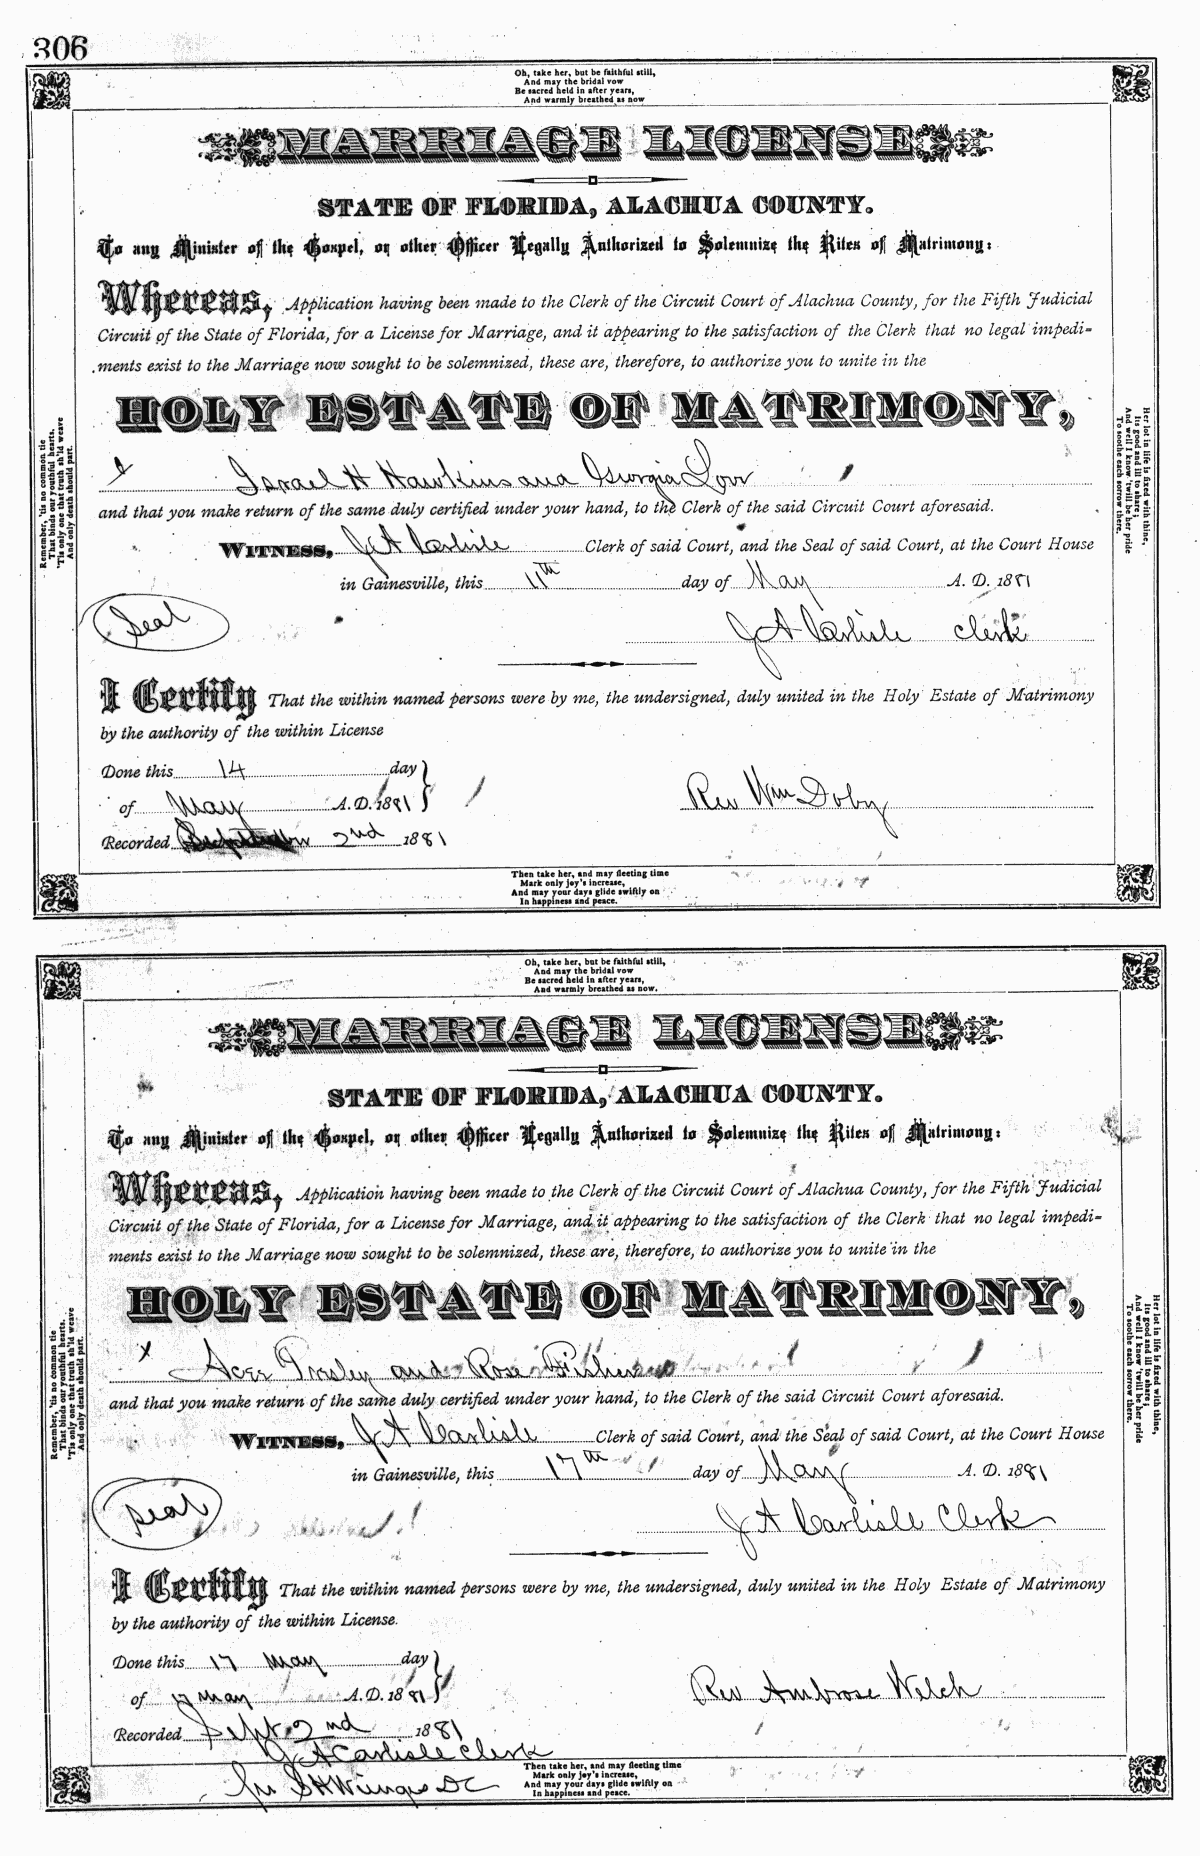 306
Oh, take her, but be faithful still,
And may the bridal vow
Be sacred held in after years,
And warmly breathed as now
MARRIAGE LICENSE
STATE OF FLORIDA, ALACHUA COUNTY.
To any Minister of the Gospel, or other Officer Legally Authorized to Solemnize the Rites of Matrimony:
Whereas, Application having been made to the Clerk of the Circuit Court of Alachua County, for the Fifth Judicial
Circuit of the State of Florida, for a License for Marriage, and it appearing to the satisfaction of the Clerk that no legal impedi-
ments exist to the Marriage now sought to be solemnized, these are, therefore, to authorize you to unite in the
HOLY ESTATE OF MATRIMONY,
Israel H Hawkins and Georgia Low
and that you make return of the same duly certified under your hand, to the Clerk of the said Circuit Court aforesaid.
WITNESS, J A Carlisle Clerk of said Court, and the Seal of said Court, at the Court House
in Gainesville, this 11th day of May A. D. 1881
Seal
J A Carlisle Clerk
I Certify That the within named persons were by me, the undersigned, duly united in the Holy Estate of Matrimony
by the authority of the within License
Done this 14 day
of May A. D. 1881
Rev Wm Doby
Recorded 2nd 1881
Remember, 'tis no common tie
That binds our youthful hearts.
'Tis only one that truth sh'ld weave
And only death should part.
Her lot in life is fixed with thine,
Its good and ill to share;
And well I know 'twill be her pride
To soothe each sorrow there.
Then take her, and may fleeting time
Mark only joy's increase,
And may your days glide swiftly on
In happiness and peace.
Oh, take her, but be faithful still,
And may the bridal vow
Be sacred held in after years,
And warmly breathed as now.
MARRIAGE LICENSE
STATE OF FLORIDA, ALACHUA COUNTY.
To any Minister of the Gospel, or other Officer Legally Authorized to Solemnize the Rites of Matrimony:
Whereas, Application having been made to the Clerk of the Circuit Court of Alachua County, for the Fifth Judicial
Circuit of the State of Florida, for a License for Marriage, and it appearing to the satisfaction of the Clerk that no legal impedi-
ments exist to the Marriage now sought to be solemnized, these are, therefore, to authorize you to unite in the
HOLY ESTATE OF MATRIMONY,
x and Rose
and that you make return of the same duly certified under your hand, to the Clerk of the said Circuit Court aforesaid.
WITNESS, J A Carlisle Clerk of said Court, and the Seal of said Court, at the Court House
in Gainesville, this 17th day of May A. D. 1881
Seal
J A Carlisle Clerk
I Certify That the within named persons were by me, the undersigned, duly united in the Holy Estate of Matrimony
by the authority of the within License.
Done this 17 May day
of 17 May A. D. 1881
Rev Ambrose Welch
Recorded Sept 2nd 1881
J A Carlisle Clerk
DC
Remember, 'tis no common tie
That binds our youthful hearts.
'Tis only one that truth sh'ld weave
And only death should part.
Her lot in life is fixed with thine,
Its good and ill to share;
And well I know 'twill be her pride
To soothe each sorrow there.
Then take her, and may fleeting time
Mark only joy's increase,
And may your days glide swiftly on
In happiness and peace.